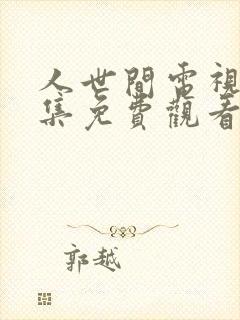 人世間電視
集免費觀看
郭越